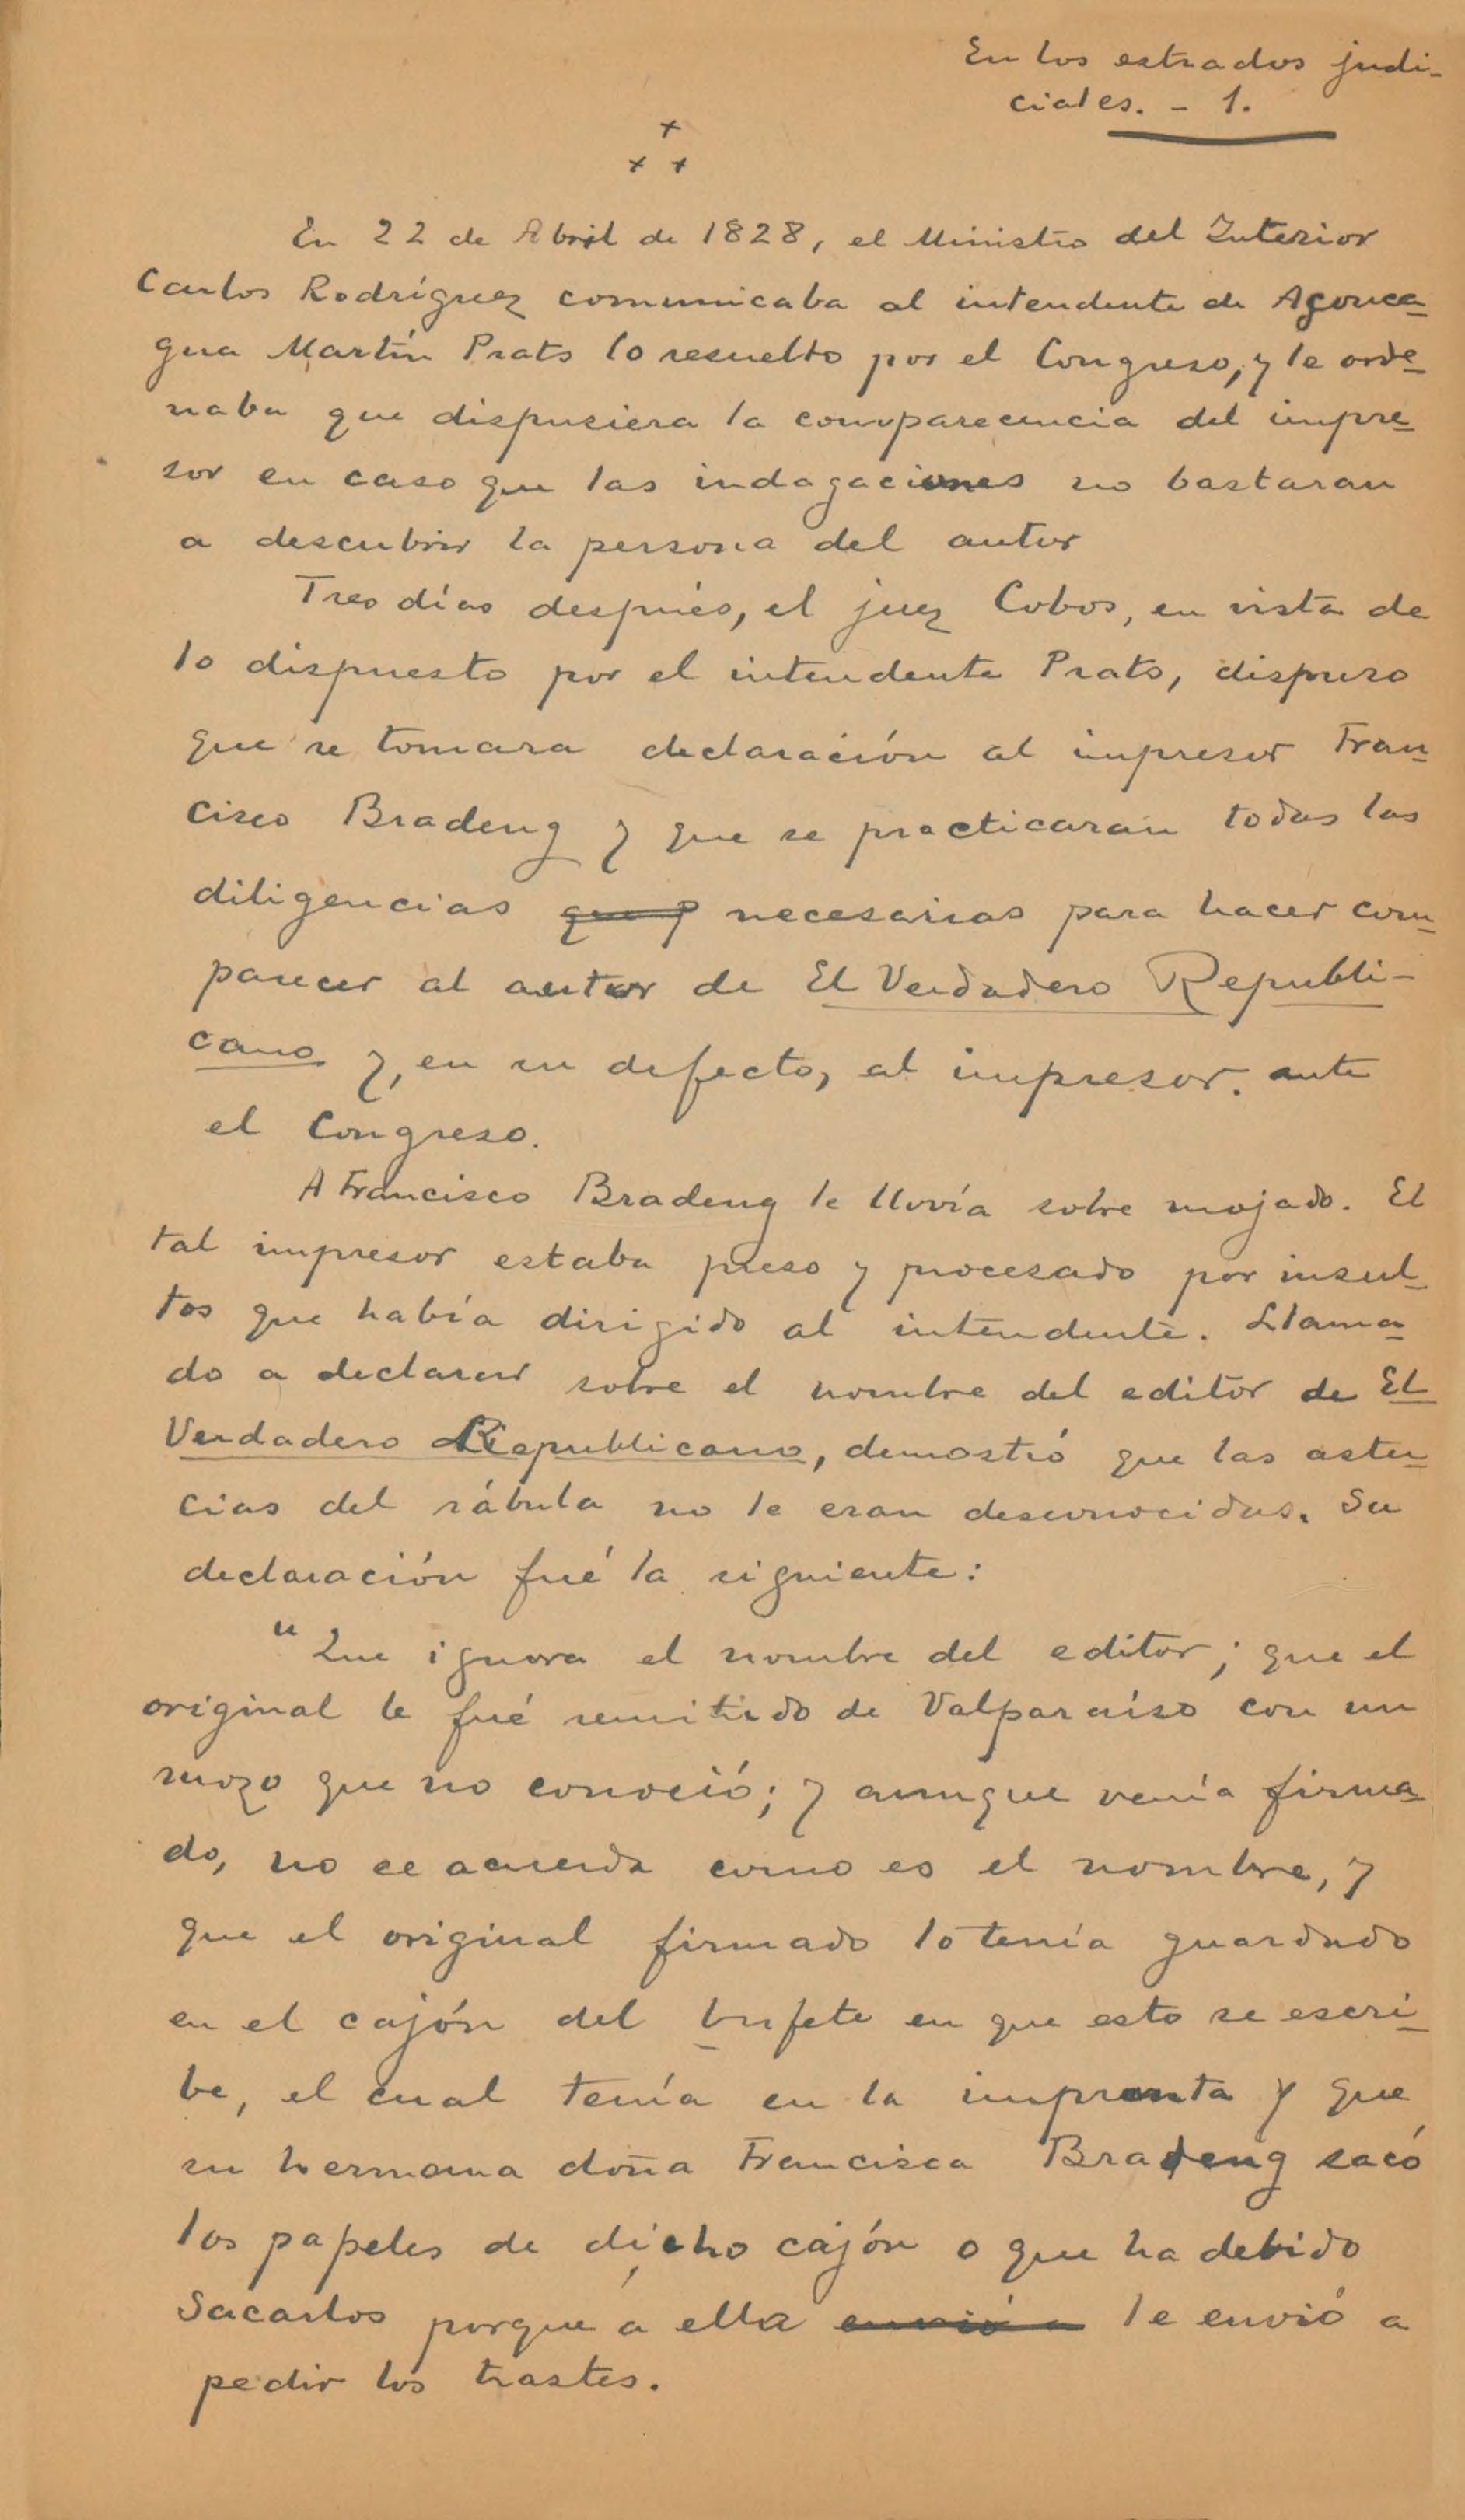 En los estrados judi-
ciales. - 1.
x
x x
En 22 de Abril de 1828, el Ministro del Interior
Carlos Rodríguez comunicaba al intendente de Aconca-
gua Martín Prats lo resuelto por el Congreso, y le orde-
naba que dispusiera la comparecencia del impre-
sor en caso que las indagaciones no bastaran
a descubrir la persona del autor
Tres días después, el juez Cobos, en vista de
lo dispuesto por el intendente Prats, dispuso
que se tomara declaración al impresor Fran-
cisco Bradeng y que se practicaran todas las
diligencias que p necesarias para hacer com-
parecer al autor de El Verdadero Republi-
cano y, en su defecto, al impresor. ante
el Congreso.
A Francisco Bradeng le llovía sobre mojado. El
tal impresor estaba preso y procesado por insul-
tos que había dirigido al intendente. Llama-
do a declarar sobre el nombre del editor de El
Verdadero Republicano, demostró que las astu-
cias del rábula no le eran desconocidas. Su
declaración fué la siguiente:
"Que ignora el nombre del editor; que el
original le fué remitido de Valparaíso con un
mozo que no conoció; y aunque venía firma-
do, no se acuerda como es el nombre, y
que el original firmado lo tenía guardado
en el cajón del bufete en que esto se escri-
be, el cual tenía en la imprenta y que
su hermana doña Francisca Bradeng sacó
los papeles de dicho cajón o que ha debido
sacarlos porque a ella envió a le envió a
pedir los trastes.